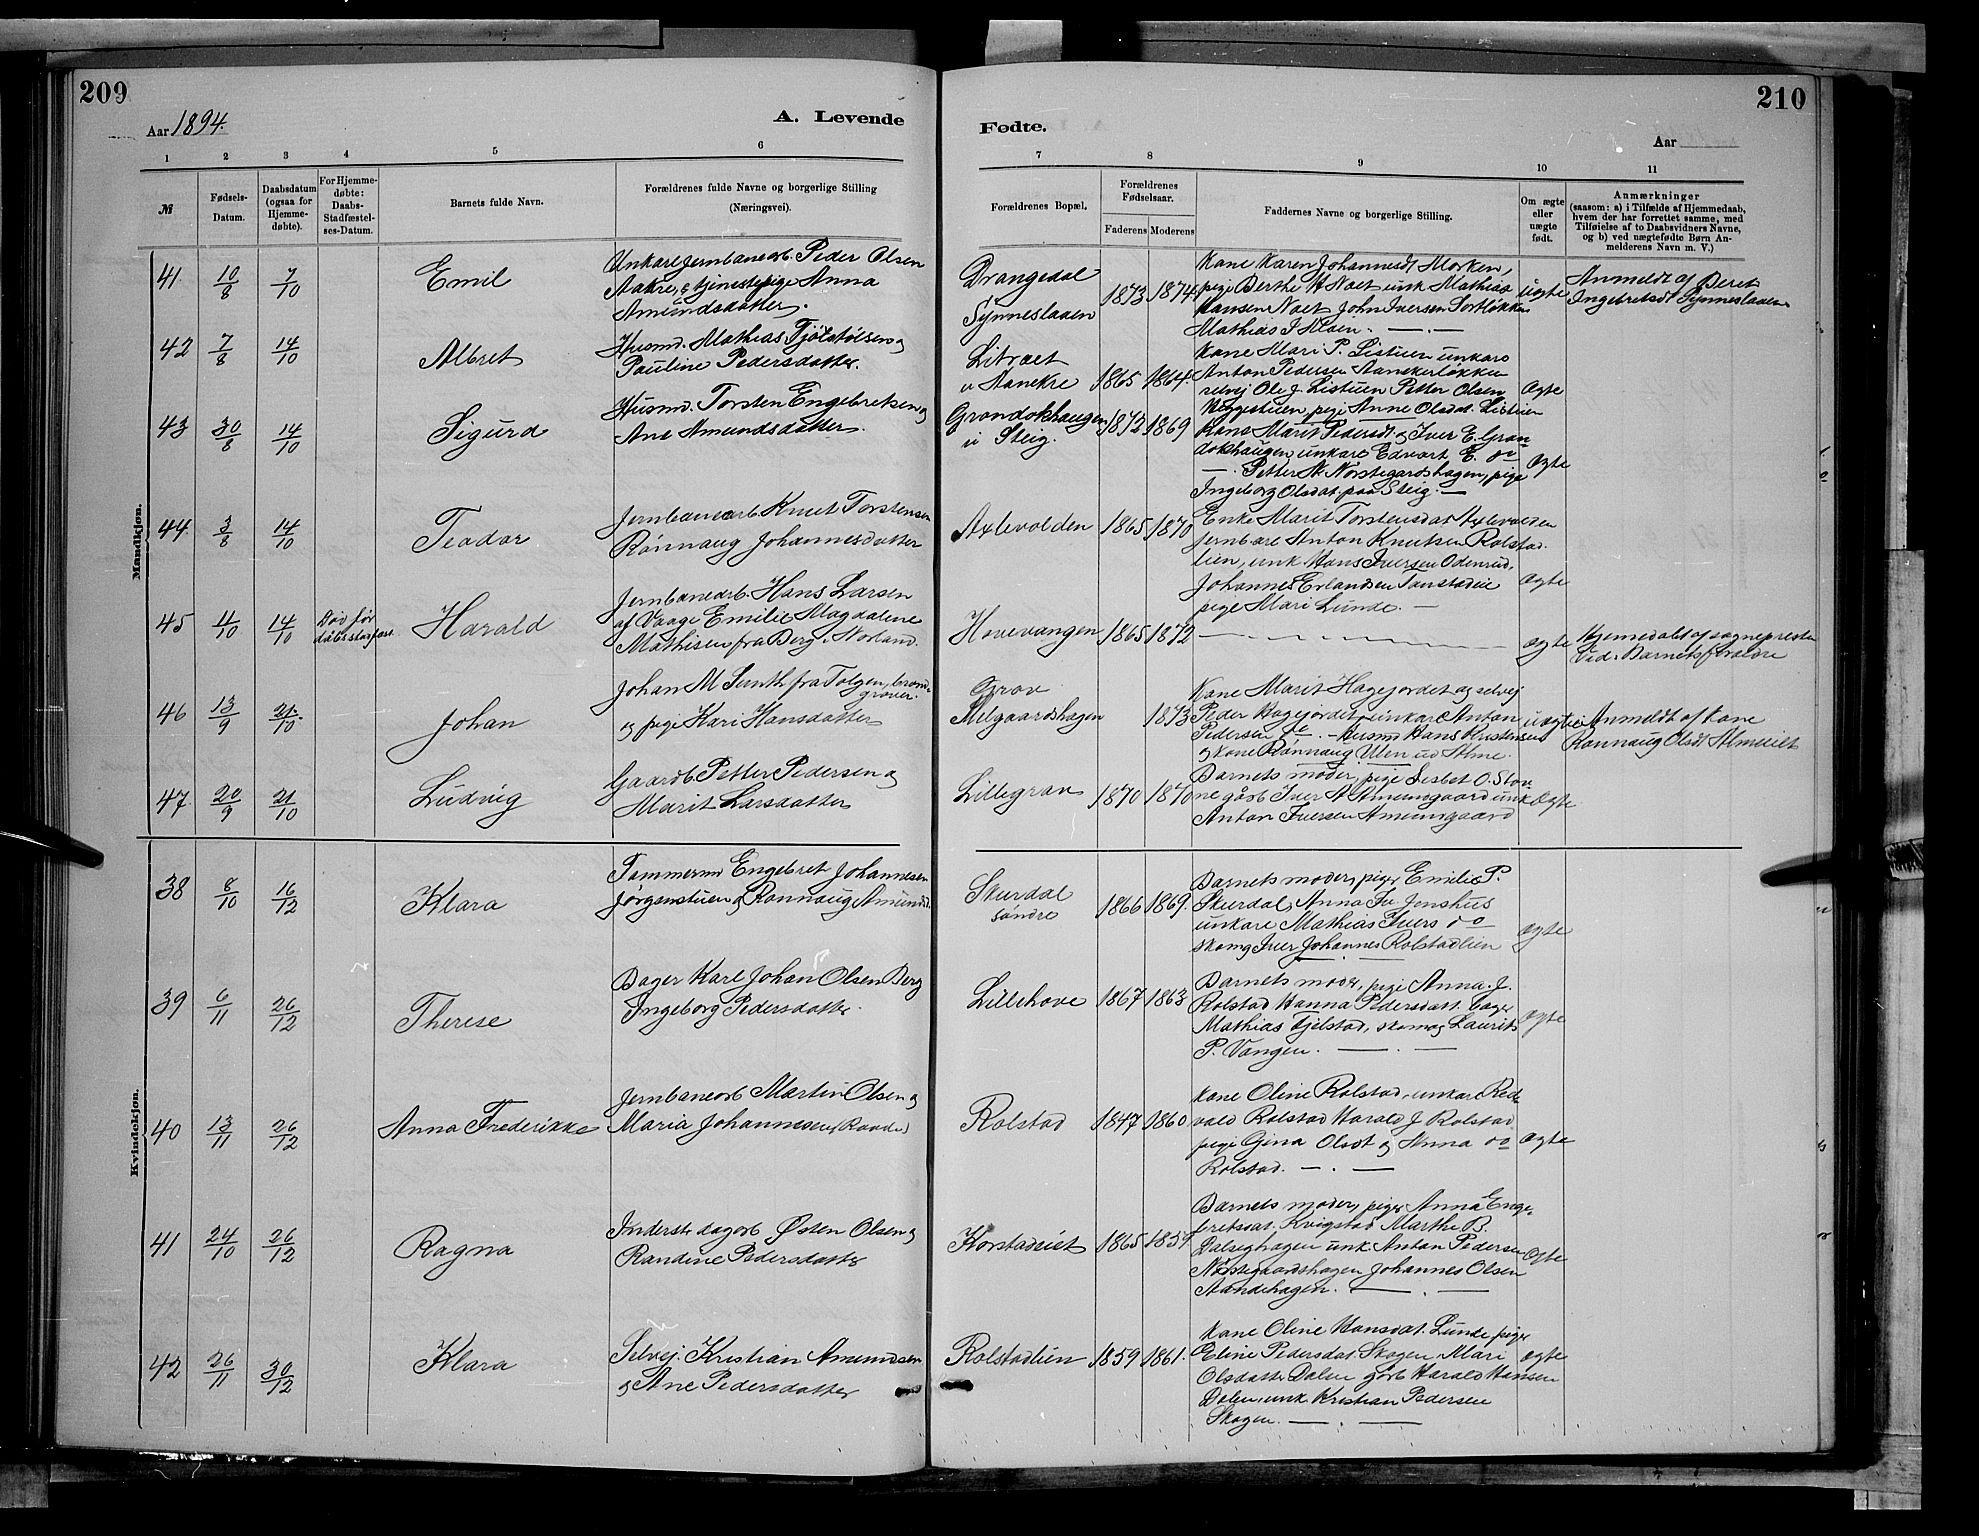 209
Aar 1894.
A. Levende
1 2 3 4 5 6
№
Fødsels-Datum.
Daabsdatum (ogsaa for Hjemmedøbte).
For Hjemmedøbte: Daabs-Stadfæstelses-Datum.
Barnets fulde Navn.
Forældrenes fulde Navne og borgerlige Stilling (Næringsvei).
Mandkjøn.
41 10/8 7/10 Emil
Unkarl jernbanearb. Peder Olsen
Aakre, & tjenestepige Anna
Amundsdatter.
42 7/8 14/10 Albret
Husmd. Mathias Tjøtstølsen og
Pauline Pedersdatter.
43 30/8 14/10 Sigurd
Husmd. Torsten Engebretsen og
Ane Amundsdatter.
44 3/8 14/10 Teodor
Jernbanearb. Knut Torstensen
Rønnaug Johannesdatter
45 4/10 14/10 Død før
dåbsstadfæst
Harald
Jernbanearb. Hans Larsen
af Vaage Emilie Magdalene
Mathisen fra Berg i Norland.
46 13/9 21/10 Johan
Johan M Sunth fra Tolgen,
graver.
og pige Kari Hansdatter
47 20/9 21/10 Ludvig
Gaardb. Petter Pedersen og
Marit Larsdatter
Kvindekjøn.
38 8/10 16/12 Klara
Tømmermd Engebret Johannesen
Jørgenstuen og Rønnaug Amundsd.
39 6/11 26/12 Therese
Bager Karl Johan Olsen Berg
Ingeborg Pedersdatter.
40 13/11 26/12 Anna Frederikke
Jernbanearb Martin Olsen og
Maria Johannesen (Raade)
41 24/10 26/12 Ragna
Inderst. dagarb Østen Olsen og
Randine Pedersdatter
42 26/11 30/12 Klara
Selvej. Kristian Amundsen
og Ane Pedersdatter
210
Fødte.
Aar
7 8 9 10 11
Forældrenes Bopæl.
Forældrenes Fødselsaar.
Faderens Moderens
Faddernes Navne og borgerlige Stilling.
Om ægte eller uægte født.
Anmærkninger
(saasom: a) i Tilfælde af Hjemmedaab,
hvem der har forrettet samme, med
Tilføielse af to Daabsvidners Navne,
og b) ved uægtefødte Børn Anmelderens Navn m. V.)
Drangedal
Synnesladen
1873 1874
Kone Karen Johannesdt Morken,
pige Berthe H Noet unk Mathias
Hansen Noet, John Iversen Sortløkken
Mathias J Kloin.
uægte
Anmeldt af Beret
Ingebretsdt Synnesladen
Litræet
u Aanekre
1865 1864.
Kone Mari P. Listuen unkarl
Anton Pedersen Aanekerløkken
selvej Ole J. Listuen Petter Olsen
Heggestuen, pige Anne Olsdat. Listuen
ægte
Grondokhaugen
u Steig.
1872 1869
Kone Marit Pedersdt. og Iver E. Gron-
dokhaugen, unkarl Edvart E. do
Petter N. Norstegardshagen, pige
Ingeborg Olsdat. paa Steig.
ægte
Axlevolden
1865 1870
Enke Marit Torstensdat Axlevolden
Jernbarb Anton Knutsen Rolstad-
lien, unk Hans Iversen Odenrud,
Johannes Erlandsen
pige Mari Lunde.
ægte
Hovevangen
1865 1872
ægte
Hjemmedøbt af sognepresten
Vid. Barnets forældre
Grov
Melgaardshagen
1873
Kone Marit Hagejordet og selvej
Peder Hagejordet unkarl Anton
Pedersen do. Husmd Hans Kristensen
og Kone Rønnaug Ulen
uægte
Anmeldt af Kone
Rønnaug Olsdt
Lillegrov
1870 1870
Barnets moder, pige Lisbet O. Slov-
ne gårb Iver A Amundsgaard unk
Anton Iversen Amundsgaard
ægte
Skurdal
søndre
1866 1869.
Barnets moder, piger Emilie P.
Skurdal, Anna Iv. Jenshus
unkare Mathias Ivers do
skomg Iver Johannes Rolstadlien
ægte
Lillehove
1867 1863
Barnets moder, pige Anna J.
Rolstad Hanna Pedersdatt. bager
Mathias Fjelstad, skomag Laurits
P. Vangen.
ægte
Rolstad
1847 1860
Kone Oline Rolstad, unkar Red-
vald Rolstad Harald J Rolstad
pige Gina Olsdt og Anna do
Rolstad.
ægte
Korstadeiet
1865
Barnets moder, piger Anna Enge-
bretsdat. Kvigstad Marthe B.
Dalseghagen unk Anton Pedersen
Norstegaardshagen Johannes Olsen
Aandehagen.
ægte
Rolstadlien
1859 1861.
Kone Oline Hansdat. Lunde, piger
Eline Pedersdat. Skogen, Mari
Olsdatter Dalen gårb Harald Hansen
Dalen, unk Kristian Pedersen
Skogen.
ægte